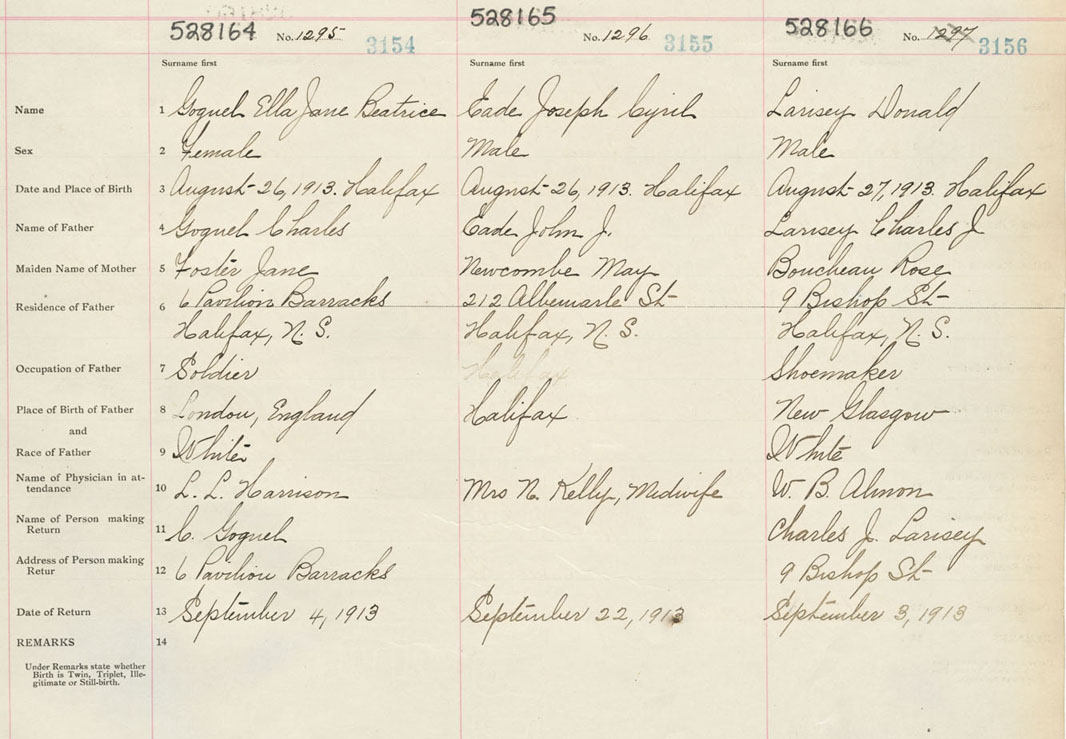 528164 No. 1295 3154 528165 No. 1296 3155 528166 No. 1297 3156
Surname first Surname first Surname first
Name 1 Goguel Ella Jane Beatrice Eade Joseph Cyril Larisey Donald
Sex 2 Female Male Male
Date and Place of Birth 3 August 26, 1913. Halifax August 26, 1913. Halifax August 27, 1913. Halifax
Name of Father 4 Goguel Charles Eade John J. Larisey Charles J
Maiden Name of Mother 5 Foster Jane Newcombe May Boucheau Rose
Residence of Father 6 6 Pavilion Barracks 212 Albemarle St 9 Bishop St
Halifax, N. S. Halifax, N. S. Halifax, N. S.
Occupation of Father 7 Soldier Halifax Shoemaker
Place of Birth of Father 8 London, England Halifax New Glasgow
and
Race of Father 9 White White
Name of Physician in at-
tendance 10 L. L. Harrison Mrs N. Kelly, Midwife W. B. Almon
Name of Person making
Return 11 C. Goguel Charles J. Larisey
Address of Person making
Retur 12 6 Pavilion Barracks 9 Bishop St
Date of Return 13 September 4, 1913 September 22, 1913 September 3, 1913
REMARKS 14
Under Remarks state whether
Birth is Twin, Triplet, Ille-
gitimate or Still-birth.